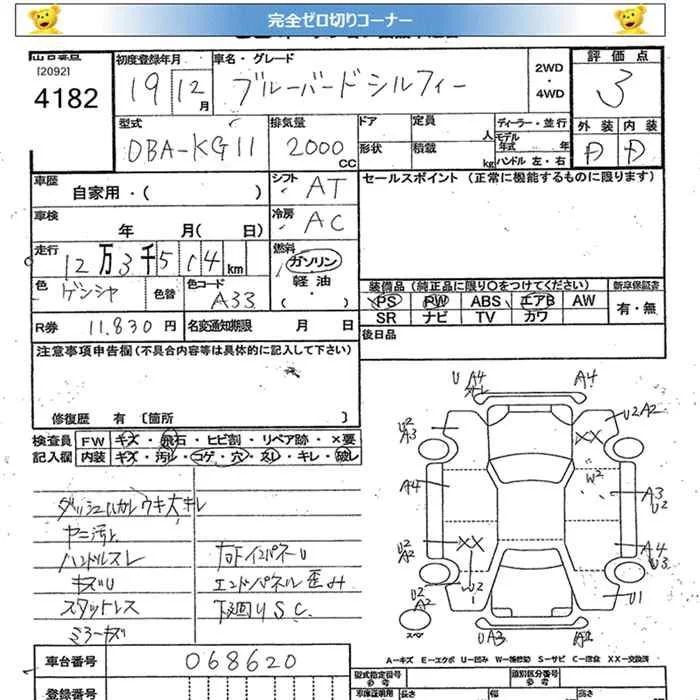 完全ゼロ切りコーナー
[2092]
4182
初度登録年月
19 12月
車名・グレード
ブルーバードシルフィー
2WD・4WD
評価点
3
型式
DBA-KG11
排気量
2000CC
ドア
定員
人
ディーラー・並行
モデル年式
年
形状
積載
kg
ハンドル 左・右
外装
内装
D
D
車歴
自家用・( )
シフト
AT
セールスポイント (正常に機能するものに限ります)
車検
年 月( 日)
冷房
AC
走行
12万3千514km
燃料
ガソリン
軽油
( ・ )
色
ゲンシャ
色替
色コード
A33
装備品 (純正品に限り○をつけてください)
新車保証書
PS PW ABS エアB AW
SR ナビ TV カワ
有・無
R券
11,830円
名変通知期限 月 日
後日品
注意事項申告欄(不具合内容等は具体的に記入して下さい)
修復歴 有 [箇所 ]
検査員記入欄
FW キズ・飛石・ヒビ割・リペア跡・×要
内装 キズ・汚レ・コゲ・穴・スレ・キレ・破レ
ヤニ汚レ
ハンドルスレ
キズU
スタットレス
ミラーキズ
エンドパネル歪み
下回りSC
U A4
A4
U2 A3
U2 A2
XX
W2
A4
A3 U2
U2 A2
XX
W2
A4 U3
U2 A2
U1
UA3
A2
A-キズ E-エクボ U-凹み W-補修跡 S-サビ C-腐食 XX-交換済
車台番号
068620
登録番号
型式指定番号
参考
類別区分番号
参考
車庫証明用
長さ
幅
高さ